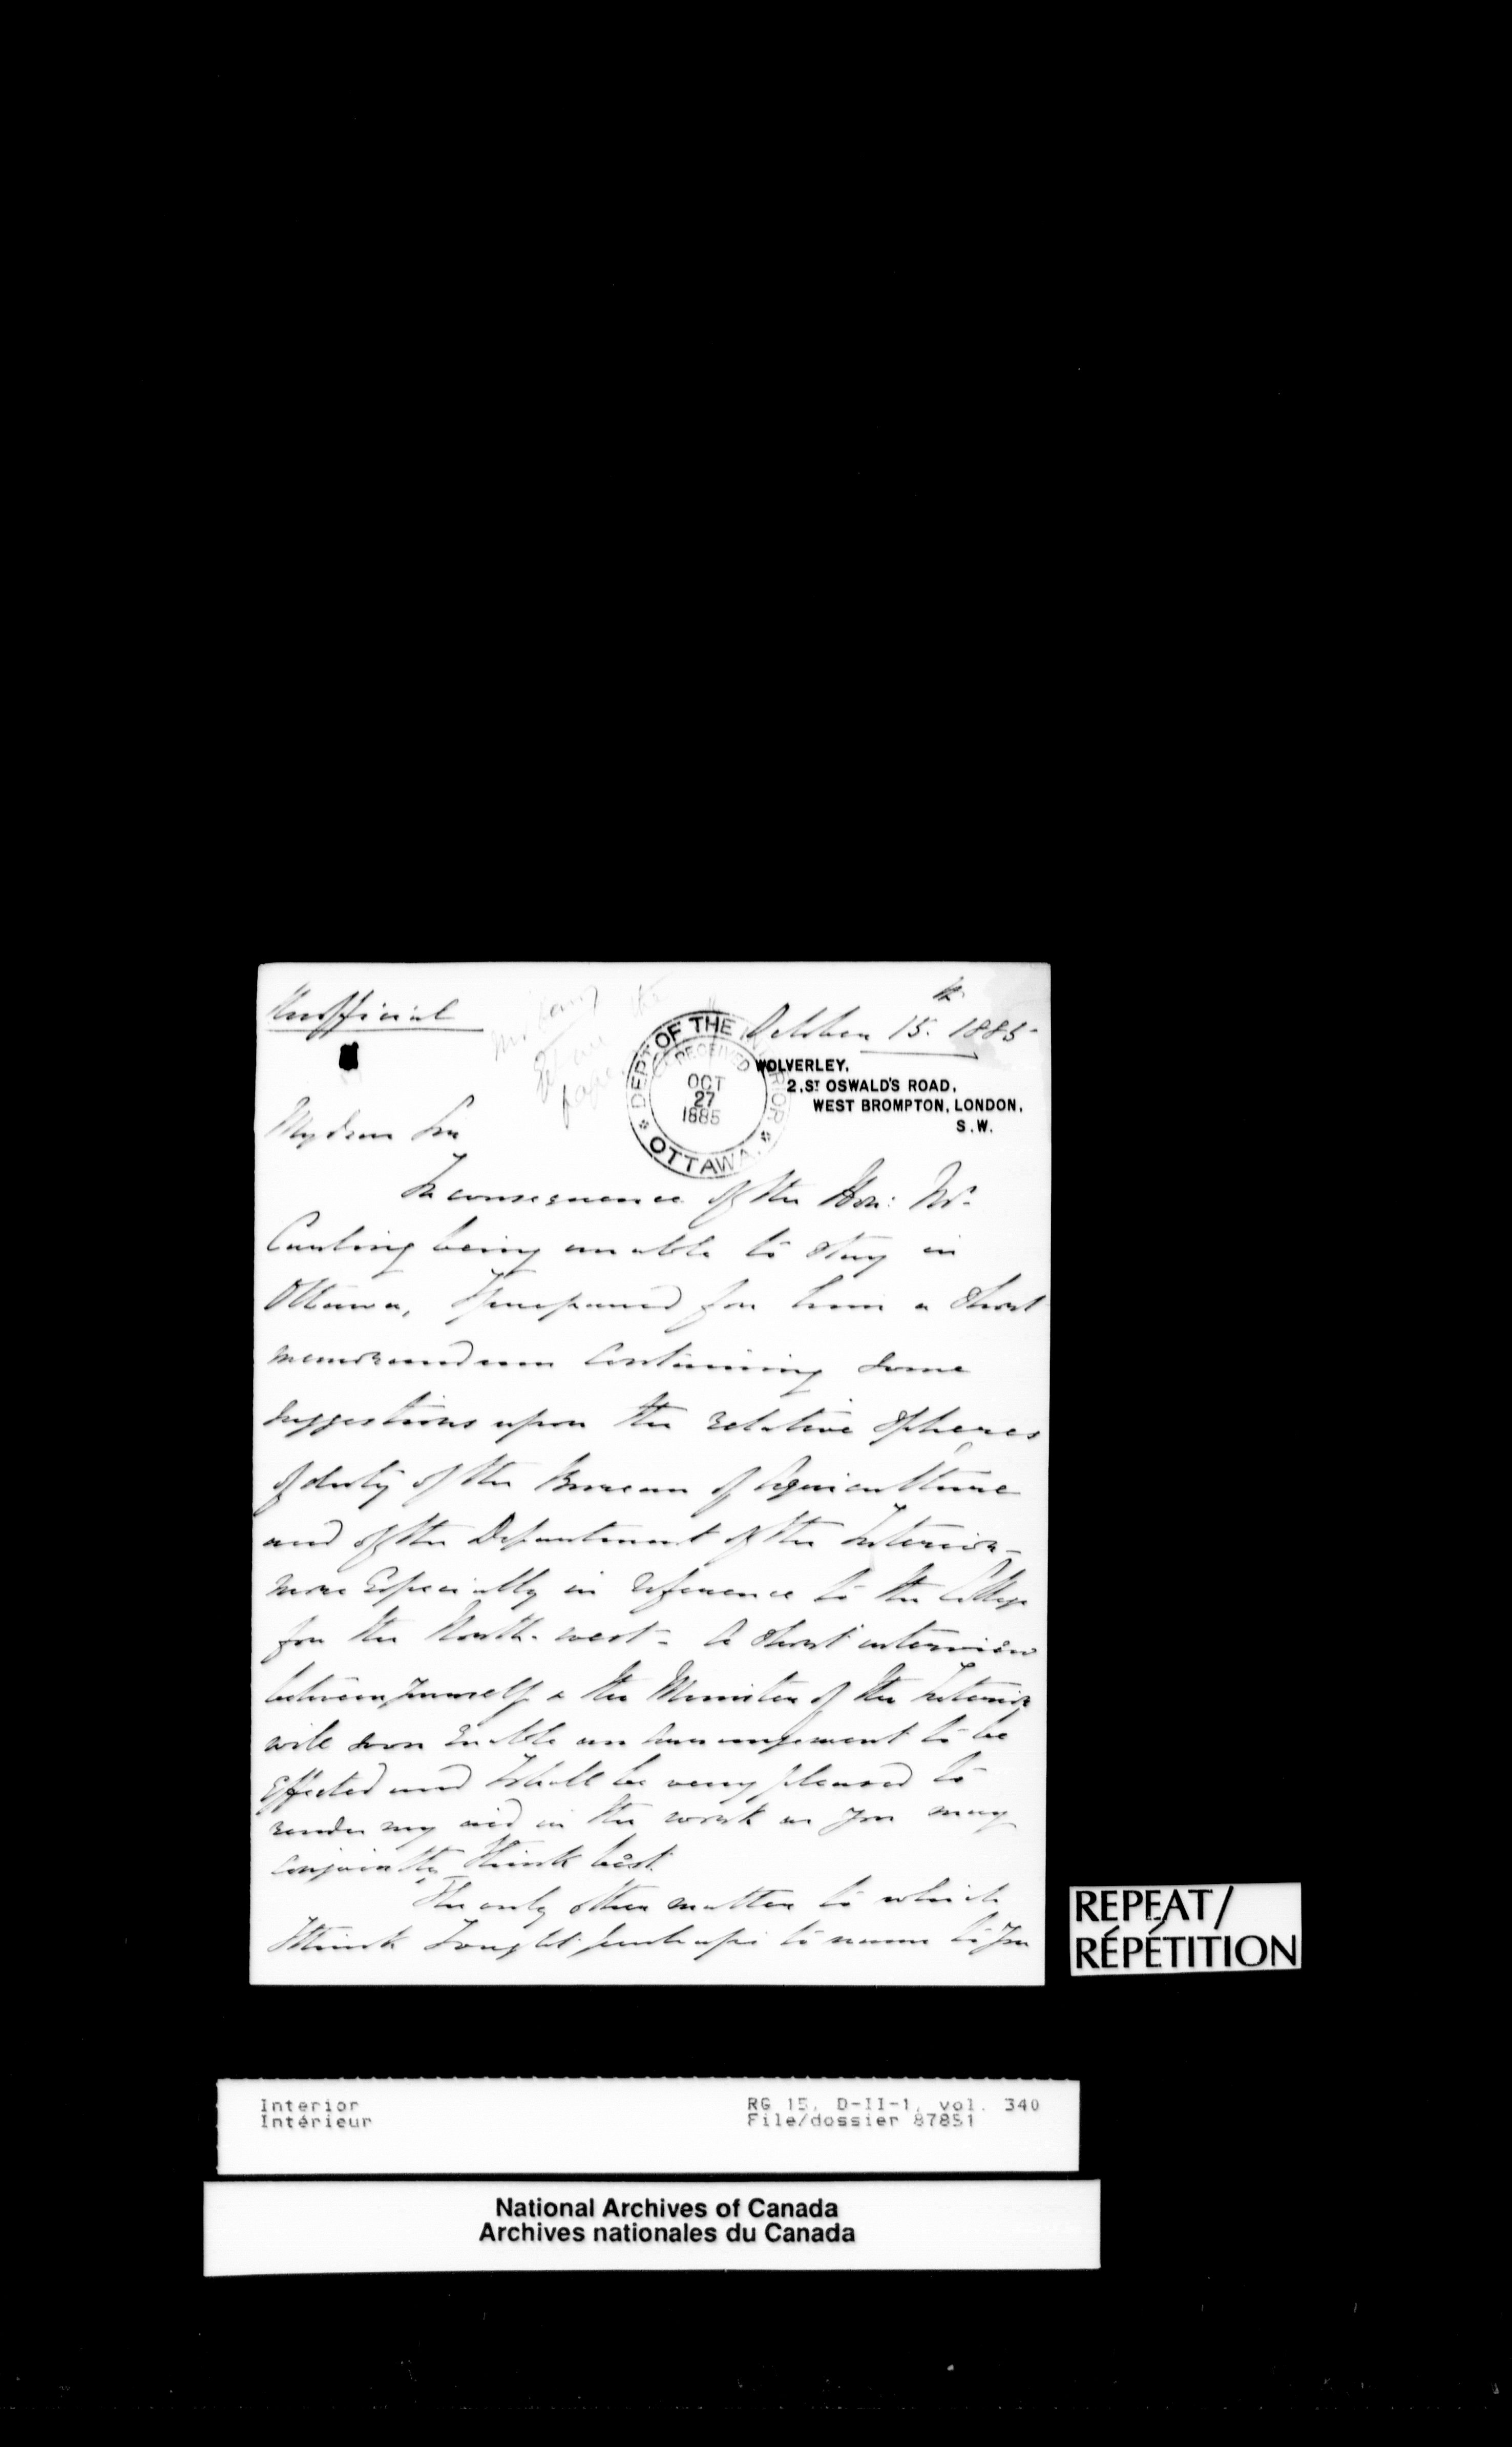 Unofficial
October 15th. 1885
DEPT OF THE INTERIOR
RECEIVED
OCT
27
1885
OTTAWA.
WOLVERLEY,
2, ST OSWALD'S ROAD,
WEST BROMPTON, LONDON,
S.W.
My dear Sir
In consequence of the Hon: Mr.
Carling being unable to stay in
Ottawa, I prepared for him a short
memorandum containing some
suggestions upon the relative spheres
of duty of the Bureau of Agriculture
and of the Department of the Interior -
more especially in reference to the College
for the North-west - A short interview
between yourself & the Minister of the Interior
will soon enable an arrangement to be
effected and I shall be very pleased to
render my aid in the work as you may
conjointly think best.
The only other matter to which
I think I ought perhaps to name to you
REPEAT/
RÉPÉTITION
Interior RG 15, D-II-1, vol. 340
Intérieur File/dossier 87851
National Archives of Canada
Archives nationales du Canada